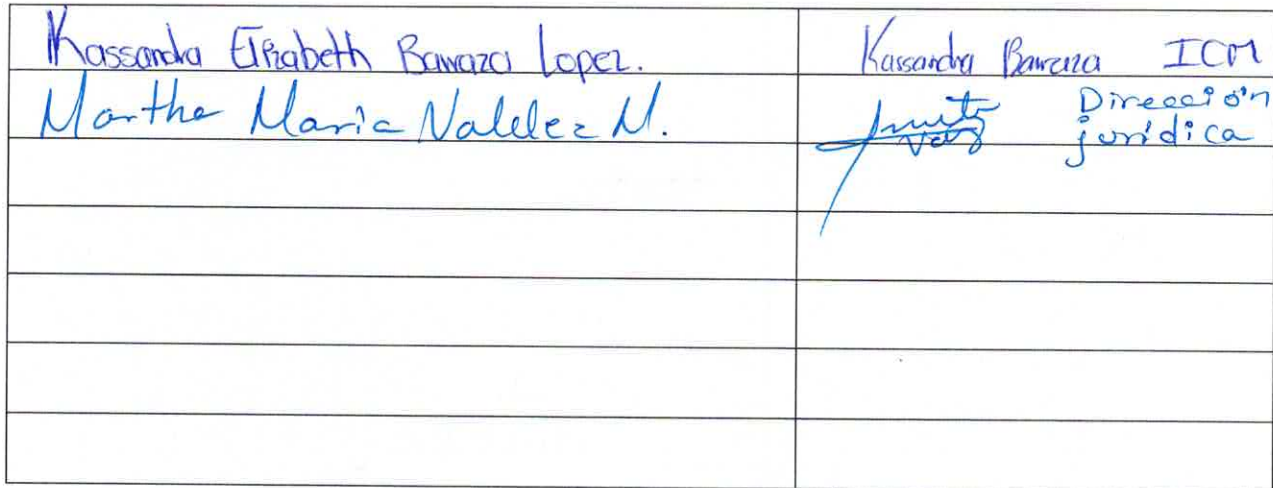 Kassandra Elizabeth Barraza Lopez. Kassandra Barraza ICM
Martha Maria Valdez N. Dirección
jurídica